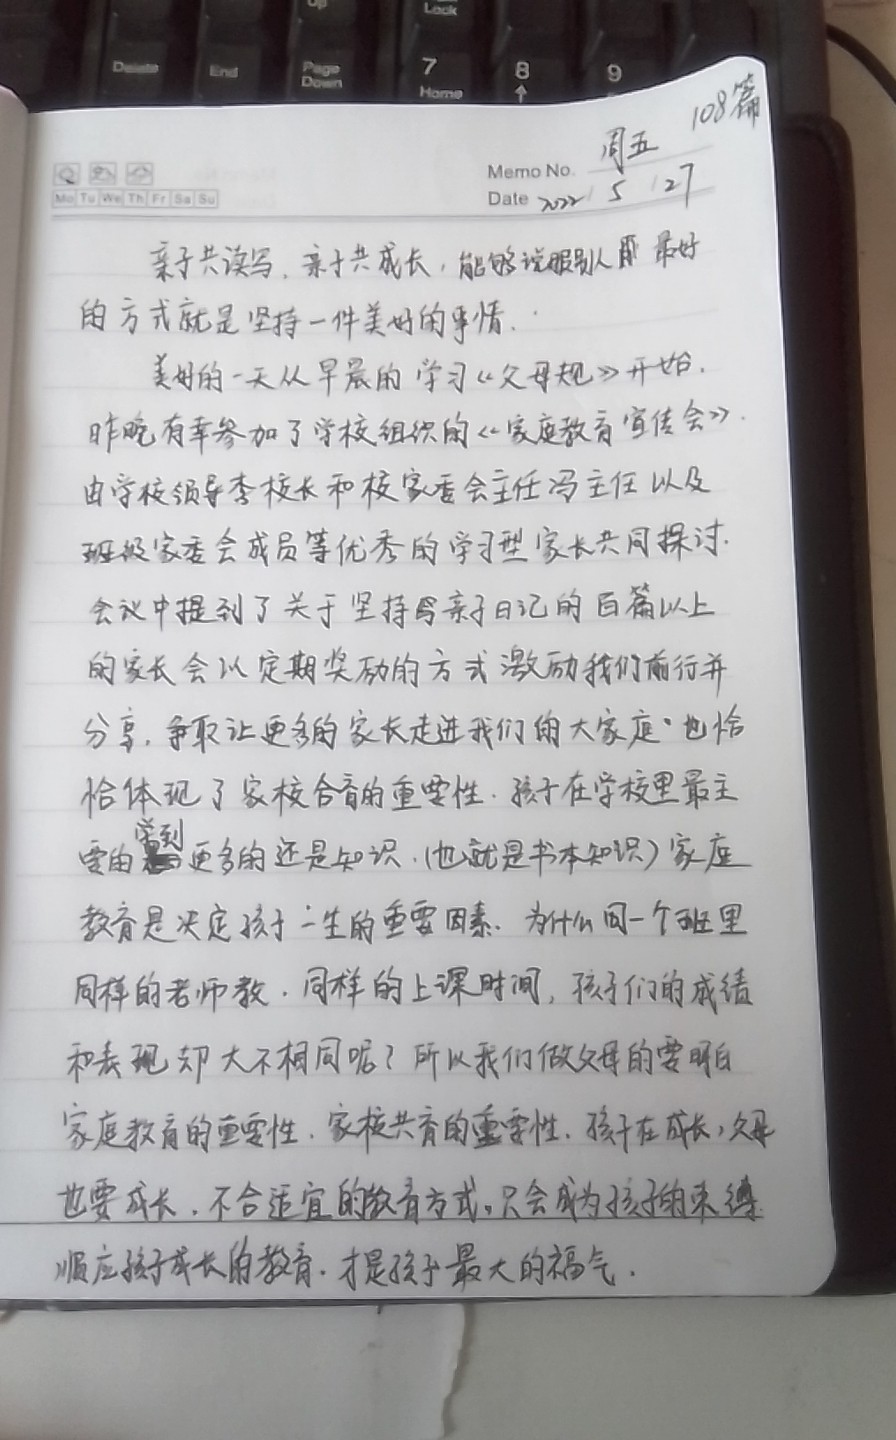 Up
Lock
Delete
End
Page
Down
7
Home
8
↑
9
108篇
Memo No. 周五
Mo Tu We Th Fr Sa Su
Date 2022 / 5 / 27
亲子共读写，亲子共成长，能够说服别人 最好
的方式就是坚持一件美好的事情.
美好的一天从早晨的学习《父母规》开始.
昨晚有幸参加了学校组织的《家庭教育宣传会》.
由学校领导李校长和校家委会主任冯主任以及
班级家委会成员等优秀的学习型家长共同探讨.
会议中提到了关于坚持写亲子日记的百篇以上
的家长会以定期奖励的方式激励我们前行并
分享，争取让更多的家长走进我们的大家庭"也恰
恰体现了家校合育的重要性.孩子在学校里最主
要的学到更多的还是知识.(也就是书本知识)家庭
教育是决定孩子一生的重要因素.为什么同一个班里
同样的老师教.同样的上课时间，孩子们的成绩
和表现却大不相同呢?所以我们做父母的要明白
家庭教育的重要性.家校共育的重要性.孩子在成长，父母
也要成长.不合适宜的教育方式。只会成为孩子的束缚.
顺应孩子成长的教育.才是孩子最大的福气.